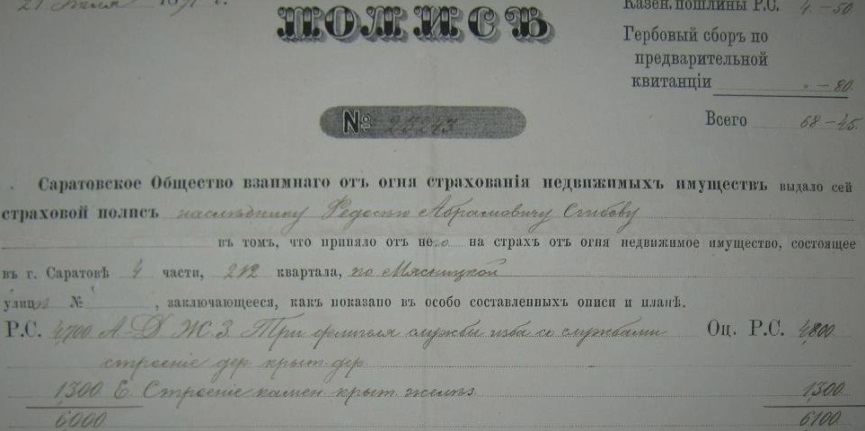 ПОЛИСЪ
Казен. пошлины Р.С. 4–50
Гербовый сборъ по
предварительной
квитанціи „–80
Всего 68–45
№ 25243
Саратовское Общество взаимнаго отъ огня страхованія недвижимыхъ имуществъ выдало сей
страховой полисъ наслѣднику Абрамовичу
въ томъ, что приняло отъ него на страхъ отъ огня недвижимое имущество, состоящее
въ г. Саратовѣ 4 части, 212 квартала, по Мясницкой
улицѣ № , заключающееся, какъ показано въ особо составленныхъ описи и планѣ.
Р.С. 4,700 А Д Ж З Три флигеля службы изба со службами Оц. Р.С. 4,800
строеніе дер крыт. дер
1,300 Е. Строеніе камен крыт. желѣз 1,300
6000 6,100